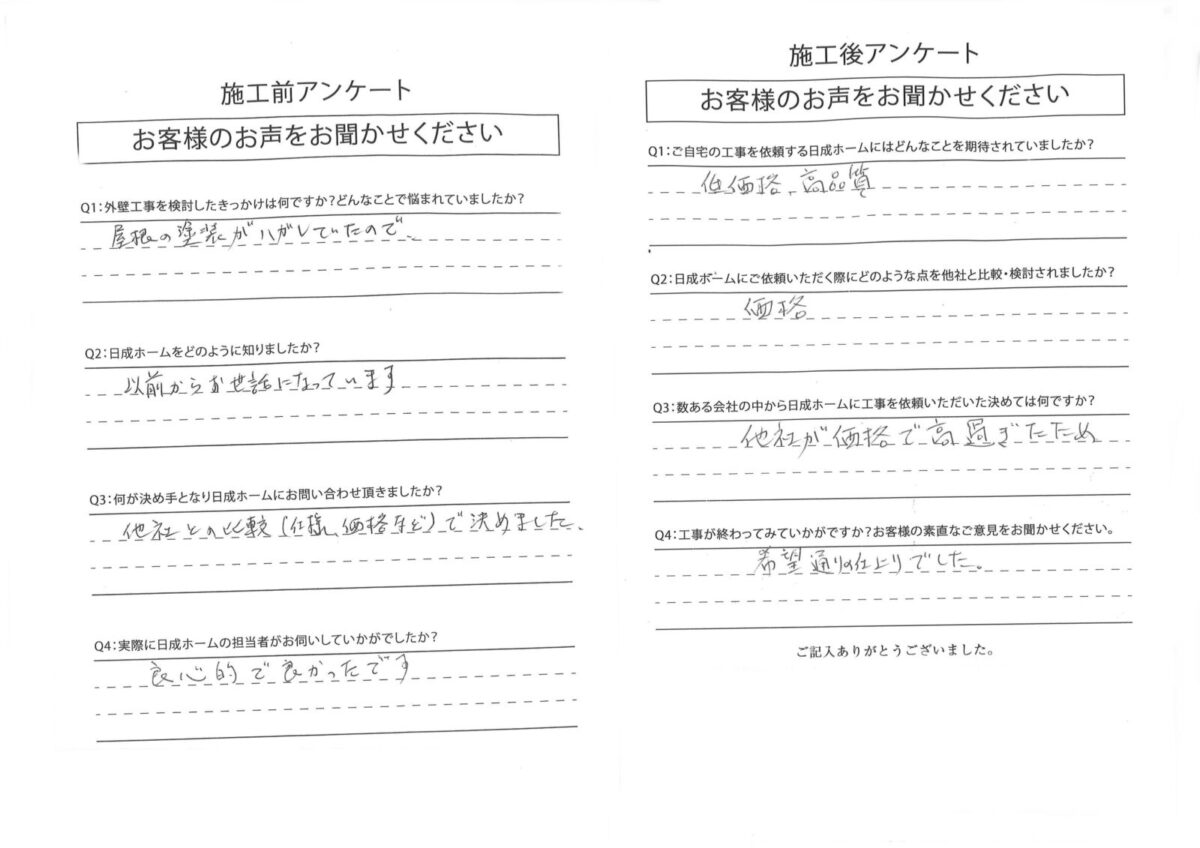 施工前アンケート
お客様のお声をお聞かせください
Q1:外壁工事を検討したきっかけは何ですか?どんなことで悩まれていましたか?
屋根の塗装がハガレていたので、
Q2:日成ホームをどのように知りましたか?
以前からお世話になっています
Q3:何が決め手となり日成ホームにお問い合わせ頂きましたか?
他社との比較(仕様、価格など)で決めました、
Q4:実際に日成ホームの担当者がお伺いしていかがでしたか?
良心的で良かったです
施工後アンケート
お客様のお声をお聞かせください
Q1:ご自宅の工事を依頼する日成ホームにはどんなことを期待されていましたか?
低価格、高品質
Q2:日成ホームにご依頼いただく際にどのような点を他社と比較・検討されましたか?
価格
Q3:数ある会社の中から日成ホームに工事を依頼いただいた決めては何ですか?
他社が価格で高過ぎたため
Q4:工事が終わってみていかがですか?お客様の素直なご意見をお聞かせください。
希望通りの仕上りでした。
ご記入ありがとうございました。